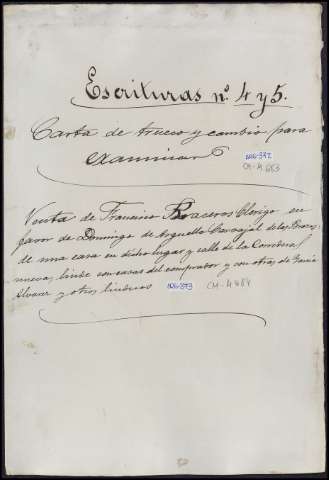 Escrituras nº 4 y 5.
Carta de trueco y cambio para
examinar
Venta de Francisco Braceros Clerigo en
favor de Domingo de Arguello Carvajal
de una casa en dicho lugar y calle de la Corredera
nueva, linde con casas del comprador y con otras de
Alvarez y otros linderos